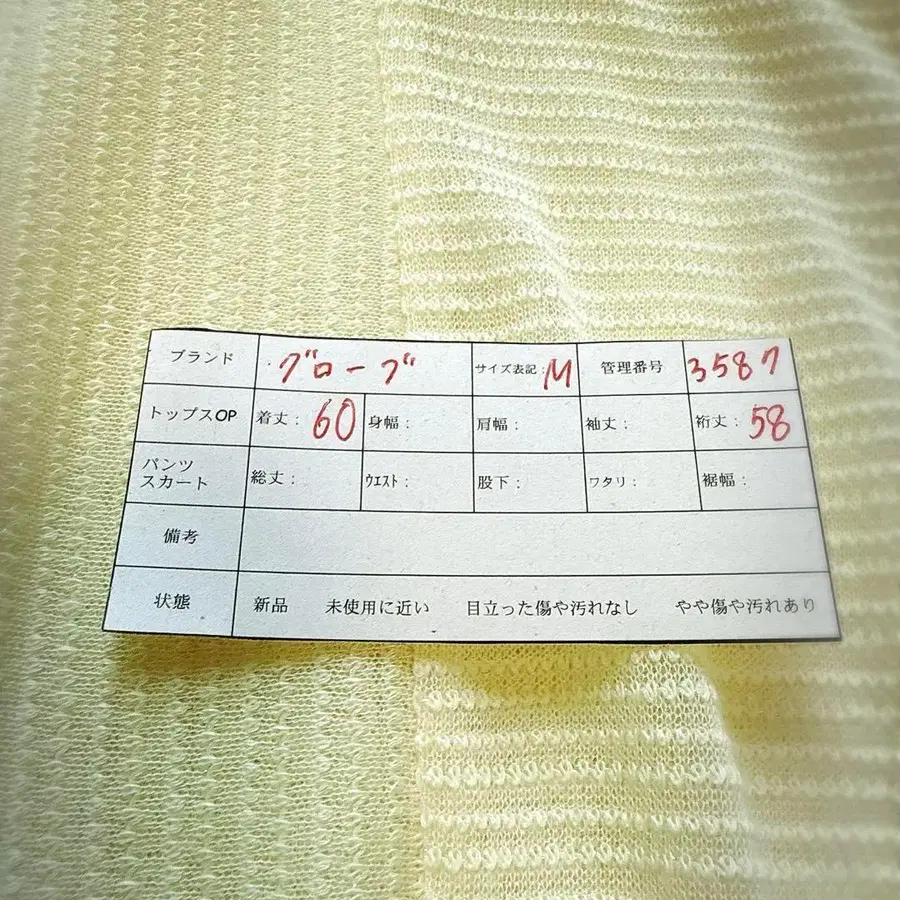 ブランド グローブ サイズ表記：M 管理番号 3587
トップスOP 着丈：60 身幅： 肩幅： 袖丈： 裄丈：58
パンツ
スカート 総丈： ウエスト： 股下： ワタリ： 裾幅：
備考
状態 新品 未使用に近い 目立った傷や汚れなし やや傷や汚れあり